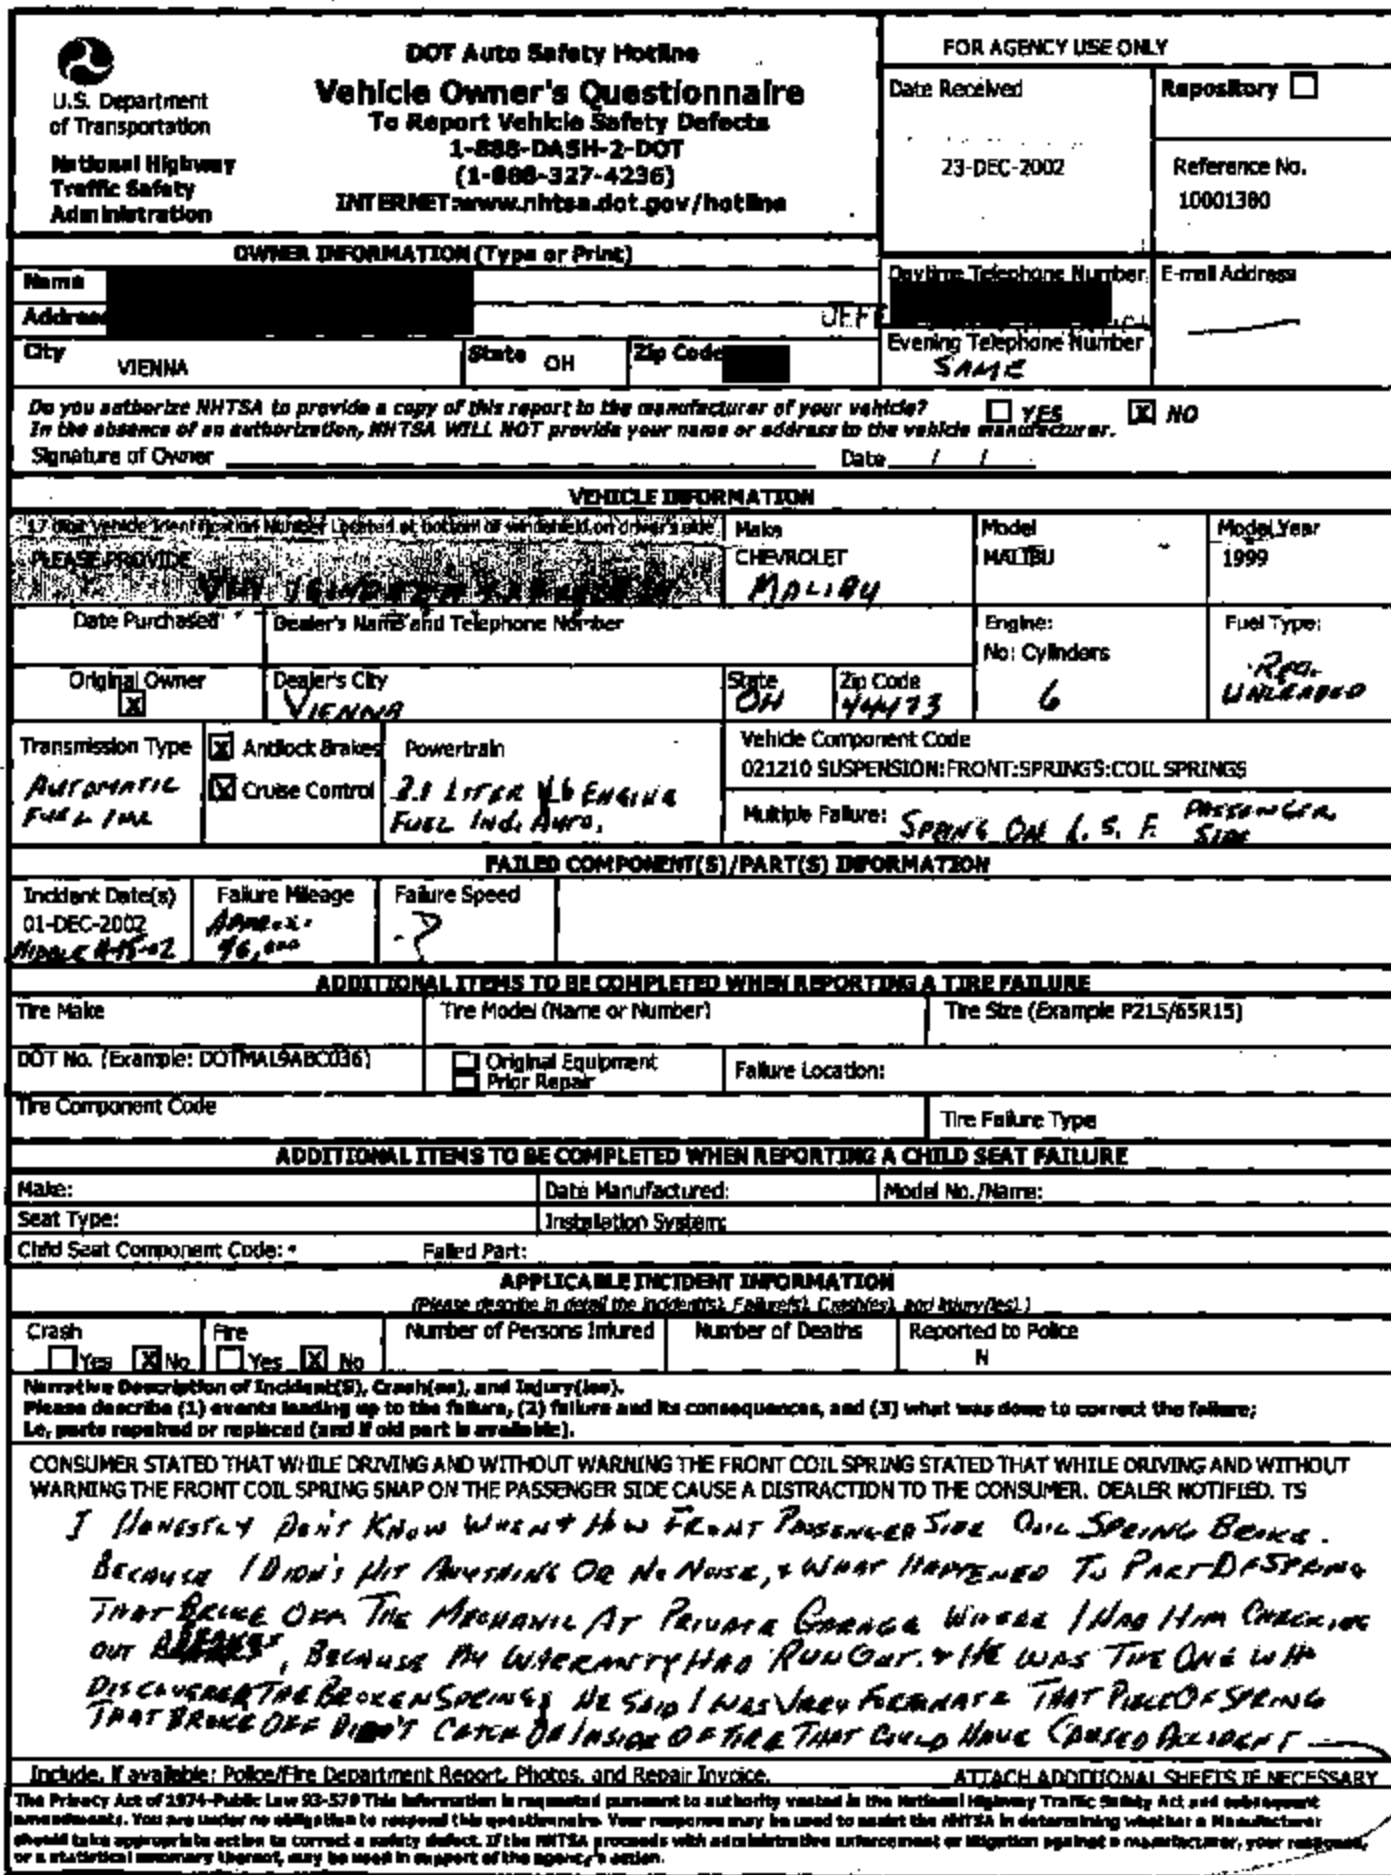 DOT Auto Safety Hotline
Vehicle Owner's Questionnaire
To Report Vehicle Safety Defects
1-888-DASH-2-DOT
(1-888-327-4236)
INTERNET:www.nhtsa.dot.gov/hotline
U.S. Department
of Transportation
National Highway
Traffic Safety
Administration
FOR AGENCY USE ONLY
Date Received
23-DEC-2002
Repository
Reference No.
10001380
OWNER INFORMATION (Type or Print)
Name
Address
City VIENNA State OH Zip Code
Daytime Telephone Number
E-mail Address
Evening Telephone Number
SAME
Do you authorize NHTSA to provide a copy of this report to the manufacturer of your vehicle? YES X NO
In the absence of an authorization, NHTSA WILL NOT provide your name or address to the vehicle manufacturer.
Signature of Owner Date / /
VEHICLE INFORMATION
17 digit Vehicle Identification Number Located at bottom of windshield on driver's side
PLEASE PROVIDE
Make
CHEVROLET
MALIBU
Model
MALIBU
Model Year
1999
Date Purchased
Dealer's Name and Telephone Number
Engine:
No: Cylinders
6
Fuel Type:
REG.
UNLEADED
Original Owner
X
Dealer's City
VIENNA
State
OH
Zip Code
44473
Transmission Type
AUTOMATIC
FUEL
X Antilock Brakes
X Cruise Control
Powertrain
3.1 LITER V6 ENGINE
FUEL IND. AUTO.
Vehicle Component Code
021210 SUSPENSION:FRONT:SPRINGS:COIL SPRINGS
Multiple Failure: SPRING ON S. F. PASSENGER
SIDE
FAILED COMPONENT(S)/PART(S) INFORMATION
Incident Date(s)
01-DEC-2002
MIDDLE
Failure Mileage
APPROX.
46,000
Failure Speed
?
ADDITIONAL ITEMS TO BE COMPLETED WHEN REPORTING A TIRE FAILURE
Tire Make
Tire Model (Name or Number)
Tire Size (Example P215/65R15)
DOT No. (Example: DOTMAL9ABC036)
Original Equipment
Prior Repair
Failure Location:
Tire Component Code
Tire Failure Type
ADDITIONAL ITEMS TO BE COMPLETED WHEN REPORTING A CHILD SEAT FAILURE
Make: Date Manufactured: Model No./Name:
Seat Type: Installation System:
Child Seat Component Code: Failed Part:
APPLICABLE INCIDENT INFORMATION
(Please describe in detail the incident(s), Failure(s), Crash(es), and injury(ies).)
Crash
Yes X No
Fire
Yes X No
Number of Persons Injured
Number of Deaths
Reported to Police
N
Narrative Description of Incident(S), Crash(es), and Injury(ies).
Please describe (1) events leading up to the failure, (2) failure and its consequences, and (3) what was done to correct the failure;
i.e, parts repaired or replaced (and if old part is available).
CONSUMER STATED THAT WHILE DRIVING AND WITHOUT WARNING THE FRONT COIL SPRING STATED THAT WHILE DRIVING AND WITHOUT
WARNING THE FRONT COIL SPRING SNAP ON THE PASSENGER SIDE CAUSE A DISTRACTION TO THE CONSUMER. DEALER NOTIFIED. TS
I HONESTLY DON'T KNOW WHEN + HOW FRONT PASSENGER SIDE COIL SPRING BROKE.
BECAUSE I DIDN'T HIT ANYTHING OR NO NOISE, + WHAT HAPPENED TO PART OF SPRING
THAT BROKE OFF. THE MECHANIC AT PRIVATE GARAGE WHERE I HAD HIM CHECKING
OUT BRAKES, BECAUSE MY WARRANTY HAD RUN OUT. + HE WAS THE ONE WHO
DISCOVERED THE BROKEN SPRING HE SAID I WAS VERY FORTUNATE THAT PIECE OF SPRING
THAT BROKE OFF DIDN'T CATCH ON INSIDE OF TIRE THAT COULD HAVE CAUSED ACCIDENT
Include, if available: Police/Fire Department Report, Photos, and Repair Invoice. ATTACH ADDITIONAL SHEETS IF NECESSARY
The Privacy Act of 1974-Public Law 93-579 This information is requested pursuant to authority vested in the National Highway Traffic Safety Act and subsequent
amendments. You are under no obligation to respond this questionnaire. Your response may be used to assist the NHTSA in determining whether a Manufacturer
should take appropriate action to correct a safety defect. If the NHTSA proceeds with administrative enforcement or litigation against a manufacturer, your response,
or a statistical summary thereof, may be used in support of the agency's action.